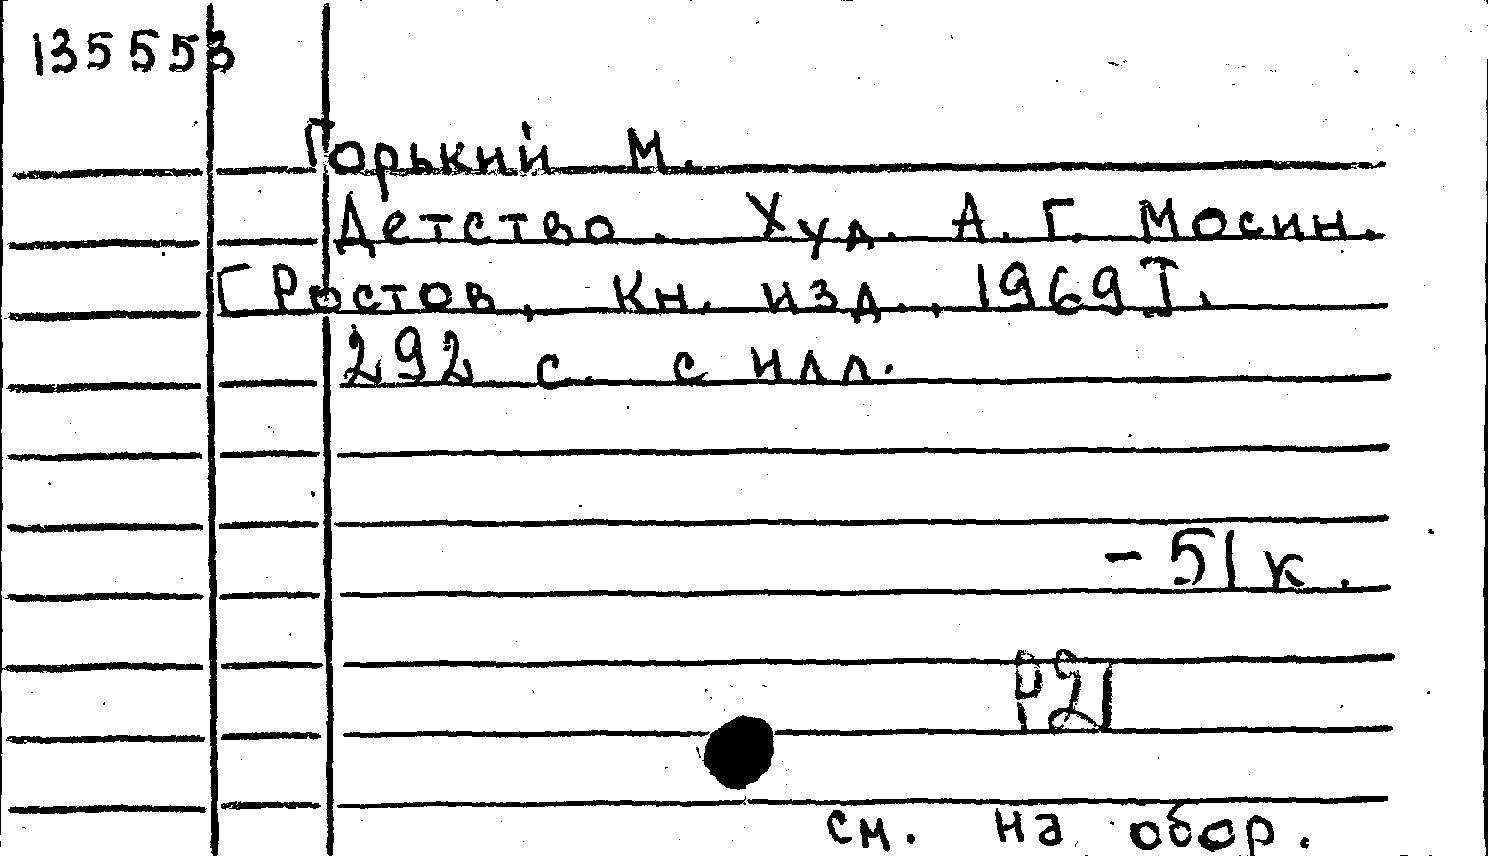 135553
Горький М.
Детство. Худ. А. Г. Мосин.
[Ростов, Кн. изд., 1969].
292 с. с илл.
- 51 к.
Р21
см. на обор.